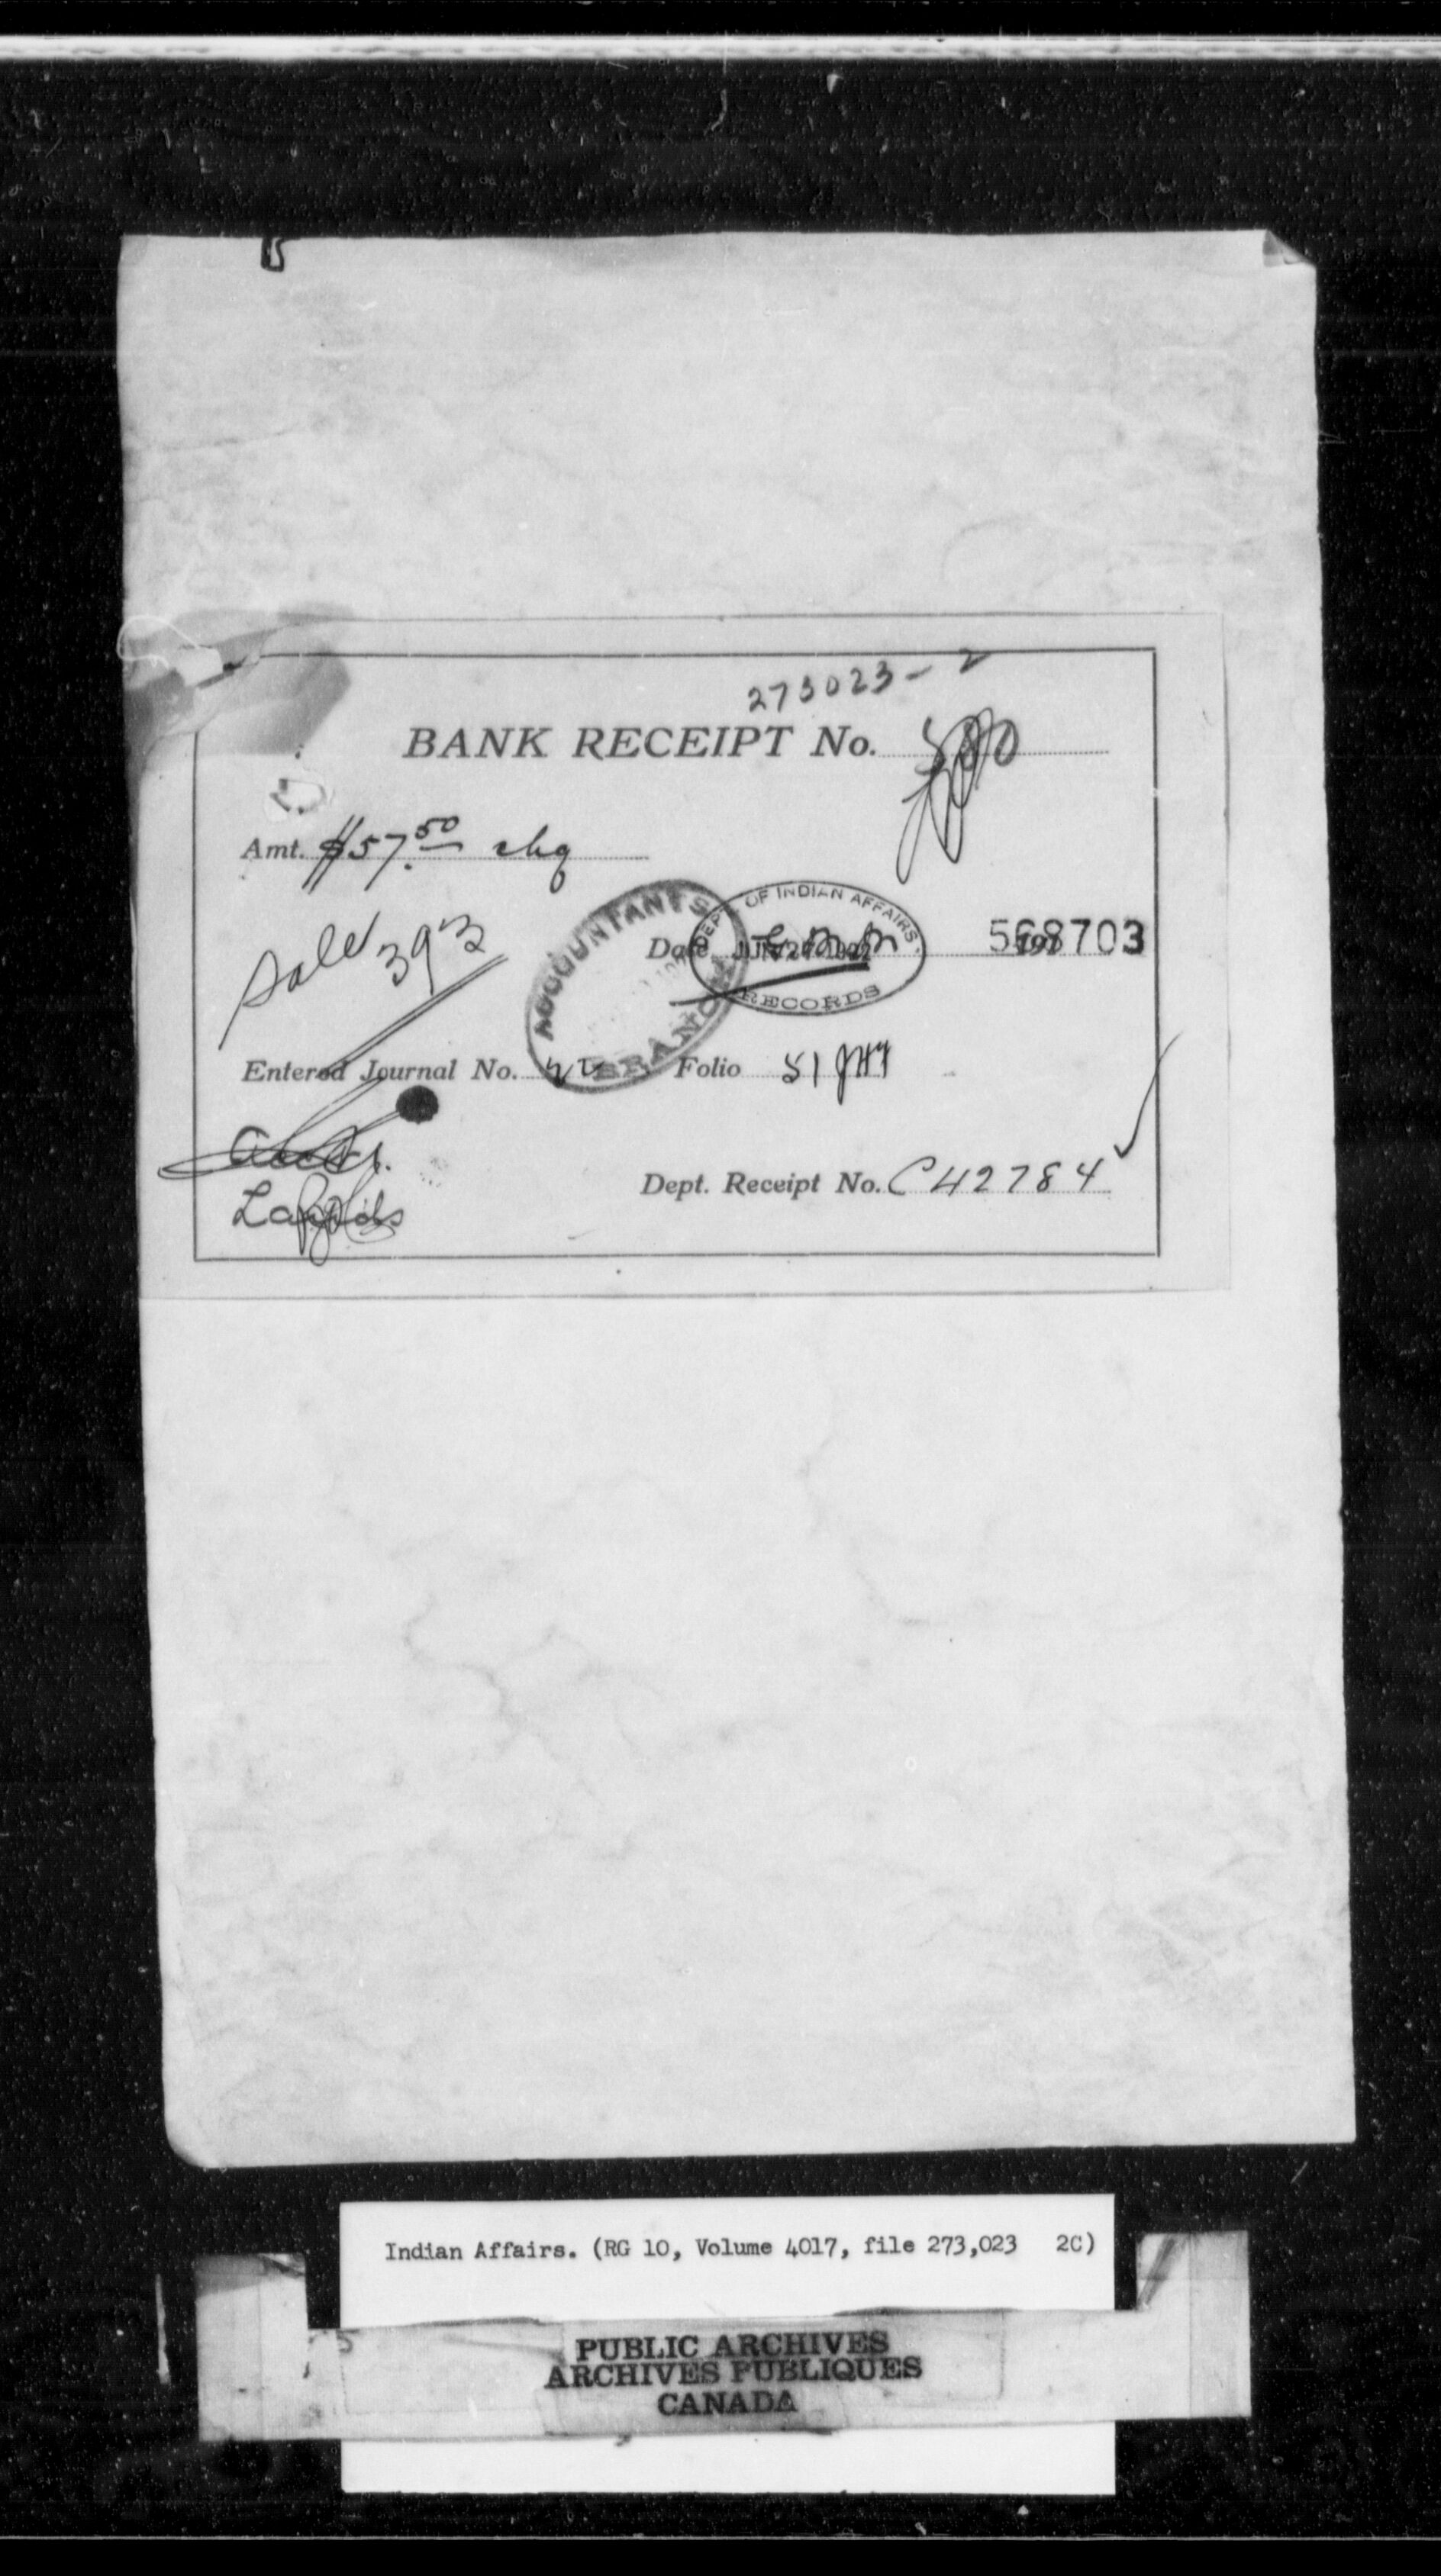 273023-2
BANK RECEIPT No.
Amt. $57.50 chq
Sale 393
ACCOUNTANT'S BRANCH
DEPT OF INDIAN AFFAIRS. RECORDS
Date JUN 27 1922 568703
Entered Journal No. Folio 51
Acct.
Dept. Receipt No. C42784
Lands
Indian Affairs. (RG 10, Volume 4017, file 273,023 2C)
PUBLIC ARCHIVES
ARCHIVES PUBLIQUES
CANADA